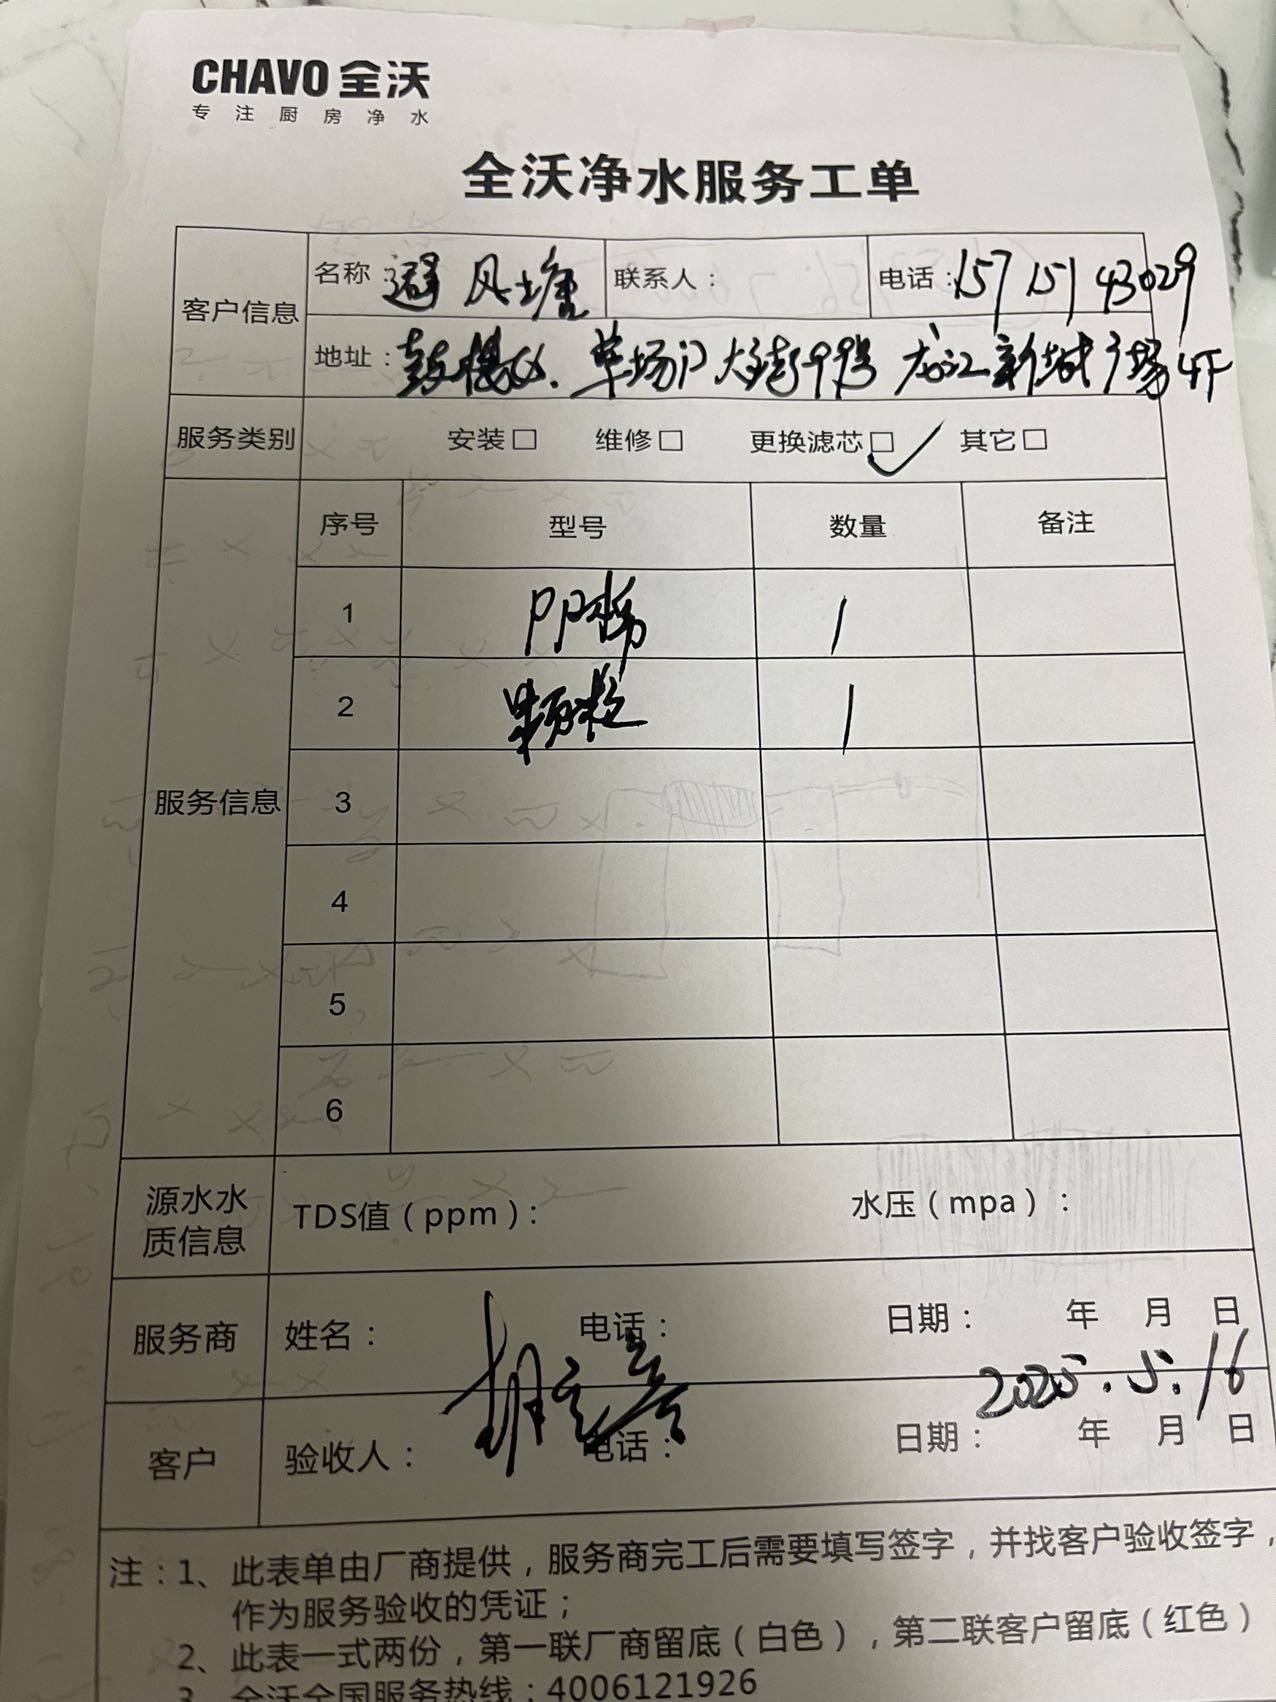 CHAVO 全沃
专注厨房净水
全沃净水服务工单
客户信息 名称 避风塘 联系人： 电话：15715143029
地址：鼓楼区、草场门大街99号 龙江新城广场4F
服务类别 安装□ 维修□ 更换滤芯□✓ 其它□
序号 型号 数量 备注
1 PP棉 1
2 颗粒 1
服务信息 3
4
5
6
源水水质信息 TDS值（ppm）： 水压（mpa）：
服务商 姓名： 电话： 日期： 年 月 日
2025.5.16
客户 验收人： 电话： 日期： 年 月 日
注：1、此表单由厂商提供，服务商完工后需要填写签字，并找客户验收签字，
作为服务验收的凭证；
2、此表一式两份，第一联厂商留底（白色），第二联客户留底（红色）
3、全沃全国服务热线：4006121926